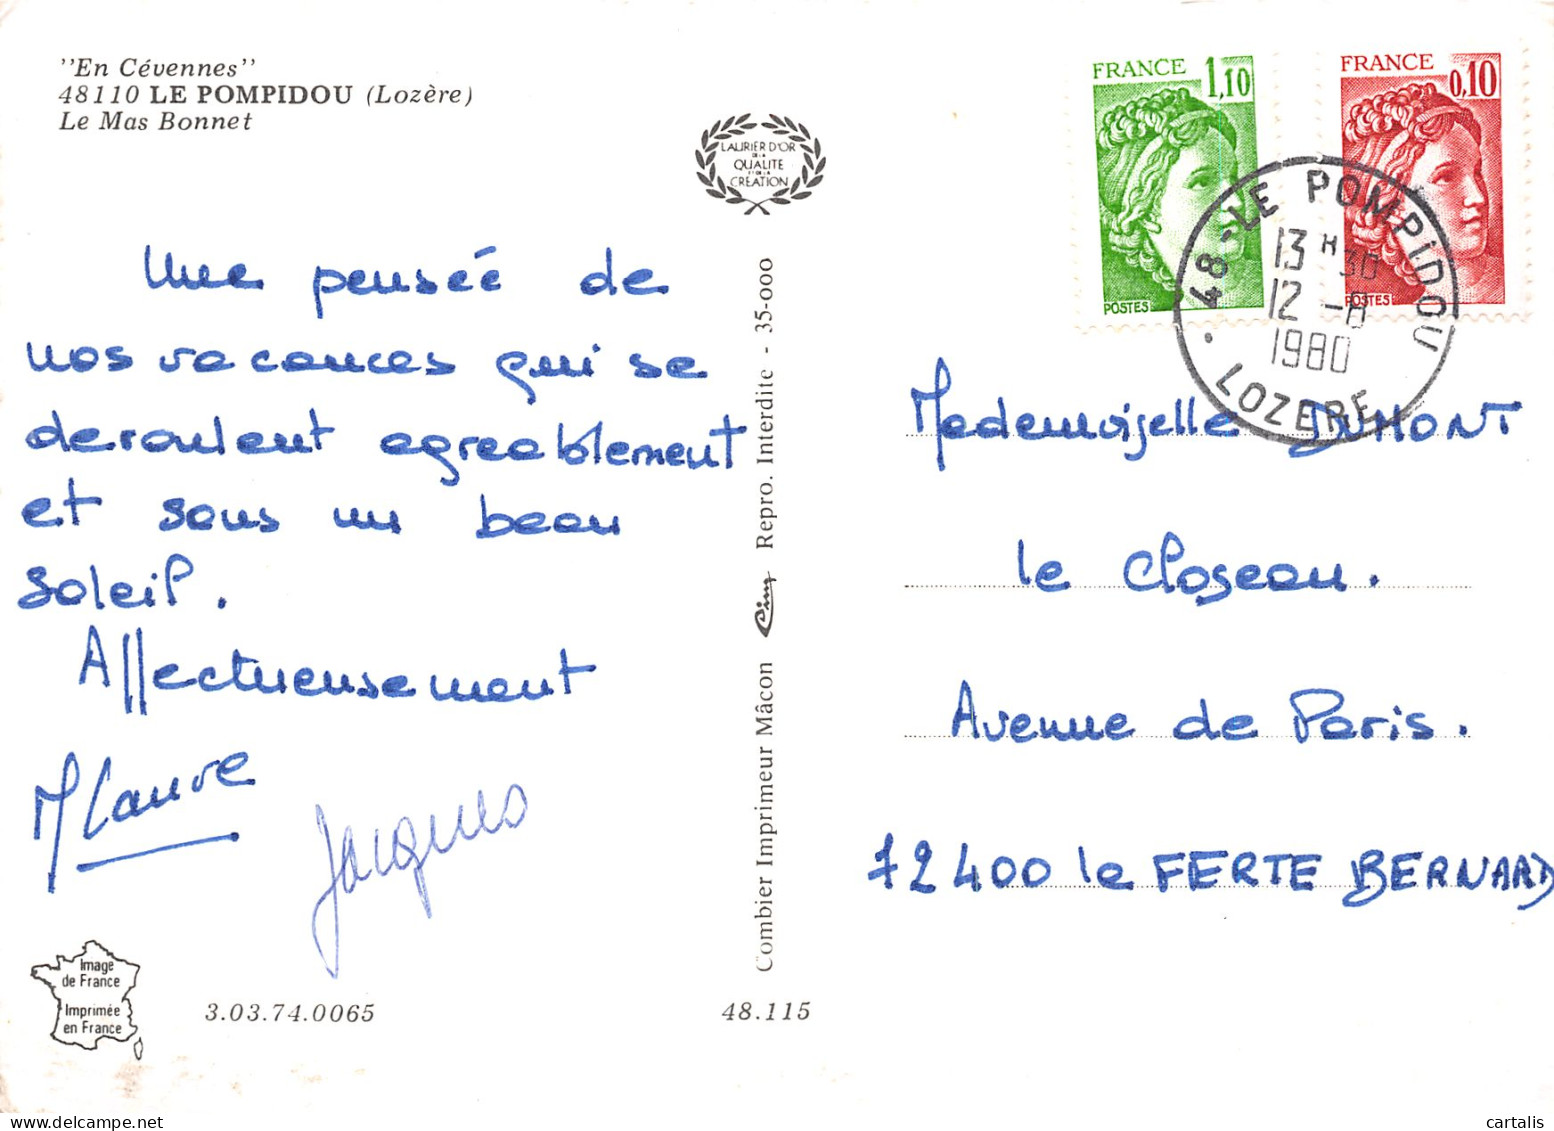 "En Cévennes"
48110 LE POMPIDOU (Lozère)
Le Mas Bonnet
LAURIER D'OR
DE LA
QUALITE
ET DE LA
CRÉATION
FRANCE
1,10
POSTES
FRANCE
0,10
POSTES
48 - LE POMPIDOU
13 H 30
12 -8
1980
LOZERE
Une pensée de
nos vacances qui se
deroulent agreablement
et sous un beau
soleil.
Affectueusement
Jacques
Mademoiselle DUMONT
le Closeau.
Avenue de Paris.
72400 la FERTE BERNARD
Combier Imprimeur Mâcon Cim Repro. Interdite - 35-000
Image
de France
Imprimée
en France
3.03.74.0065
48.115
cartalis